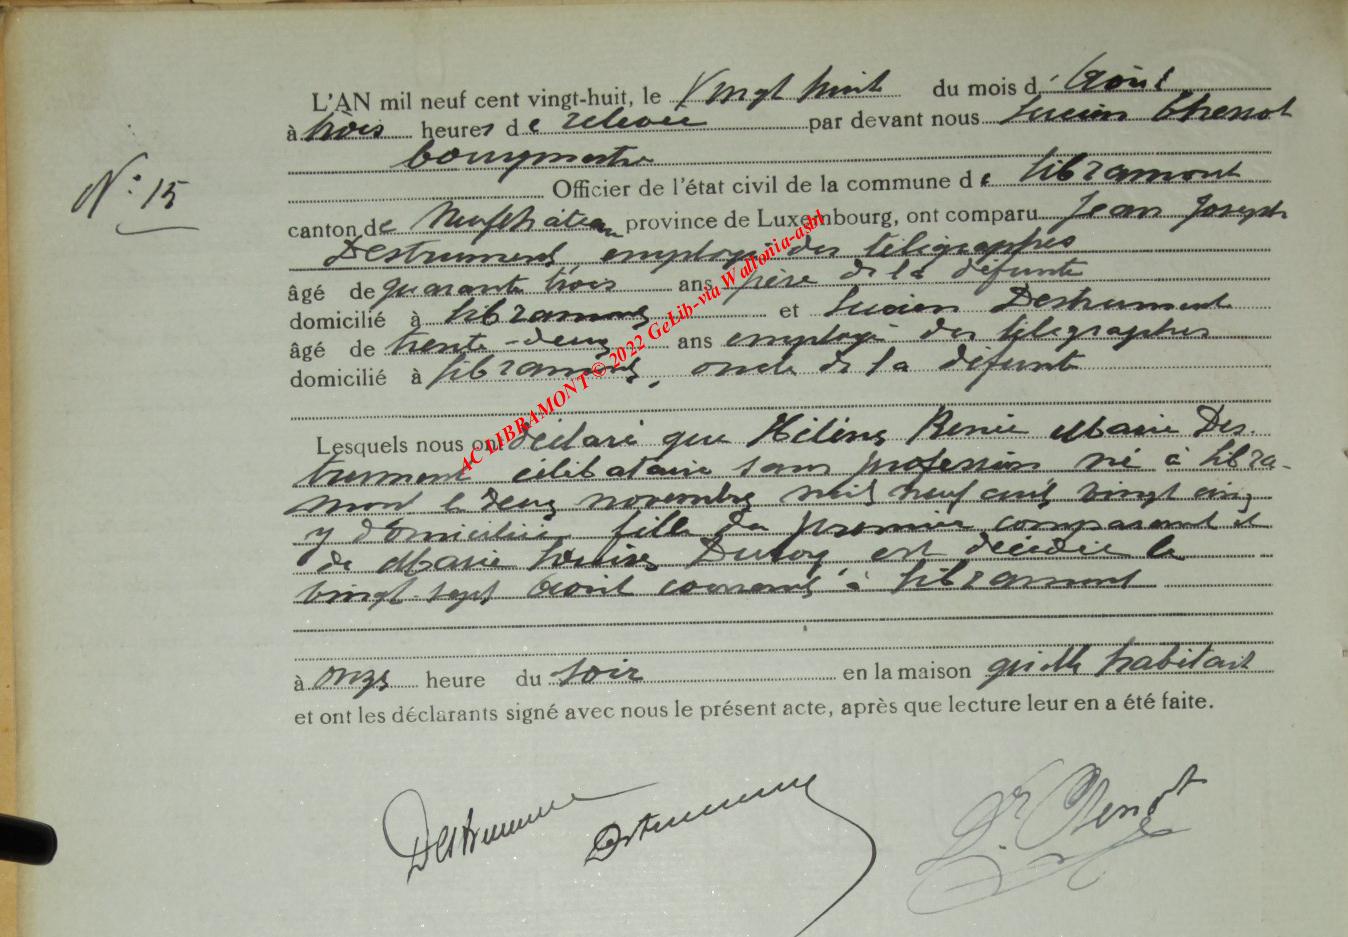 L'AN mil neuf cent vingt-huit, le Vingt huit du mois d' Août
à trois heures de relevée par devant nous Lucien Thenot
bourgmestre
N° 15
Officier de l'état civil de la commune de Libramont
canton de Neufchâteau province de Luxembourg, ont comparu Jean Joseph
Destrument, employé des télégraphes
âgé de quarante trois ans père de la défunte
domicilié à Libramont et Lucien Destrument
âgé de trente-deux ans employé des télégraphes
domicilié à Libramont, oncle de la défunte
Lesquels nous ont déclaré que Hélène Renée Marie Des
trument célibataire sans profession né à Libra-
mont le deux novembre mil neuf cent vingt cinq
y domiciliée fille du premier comparant et
de Marie Louise est décédée le
vingt-sept Août courant à Libramont
à onze heure du soir en la maison qu'elle habitait
et ont les déclarants signé avec nous le présent acte, après que lecture leur en a été faite.
AC LIBRAMONT © 2022 GeLib-via Wallonia-asbl